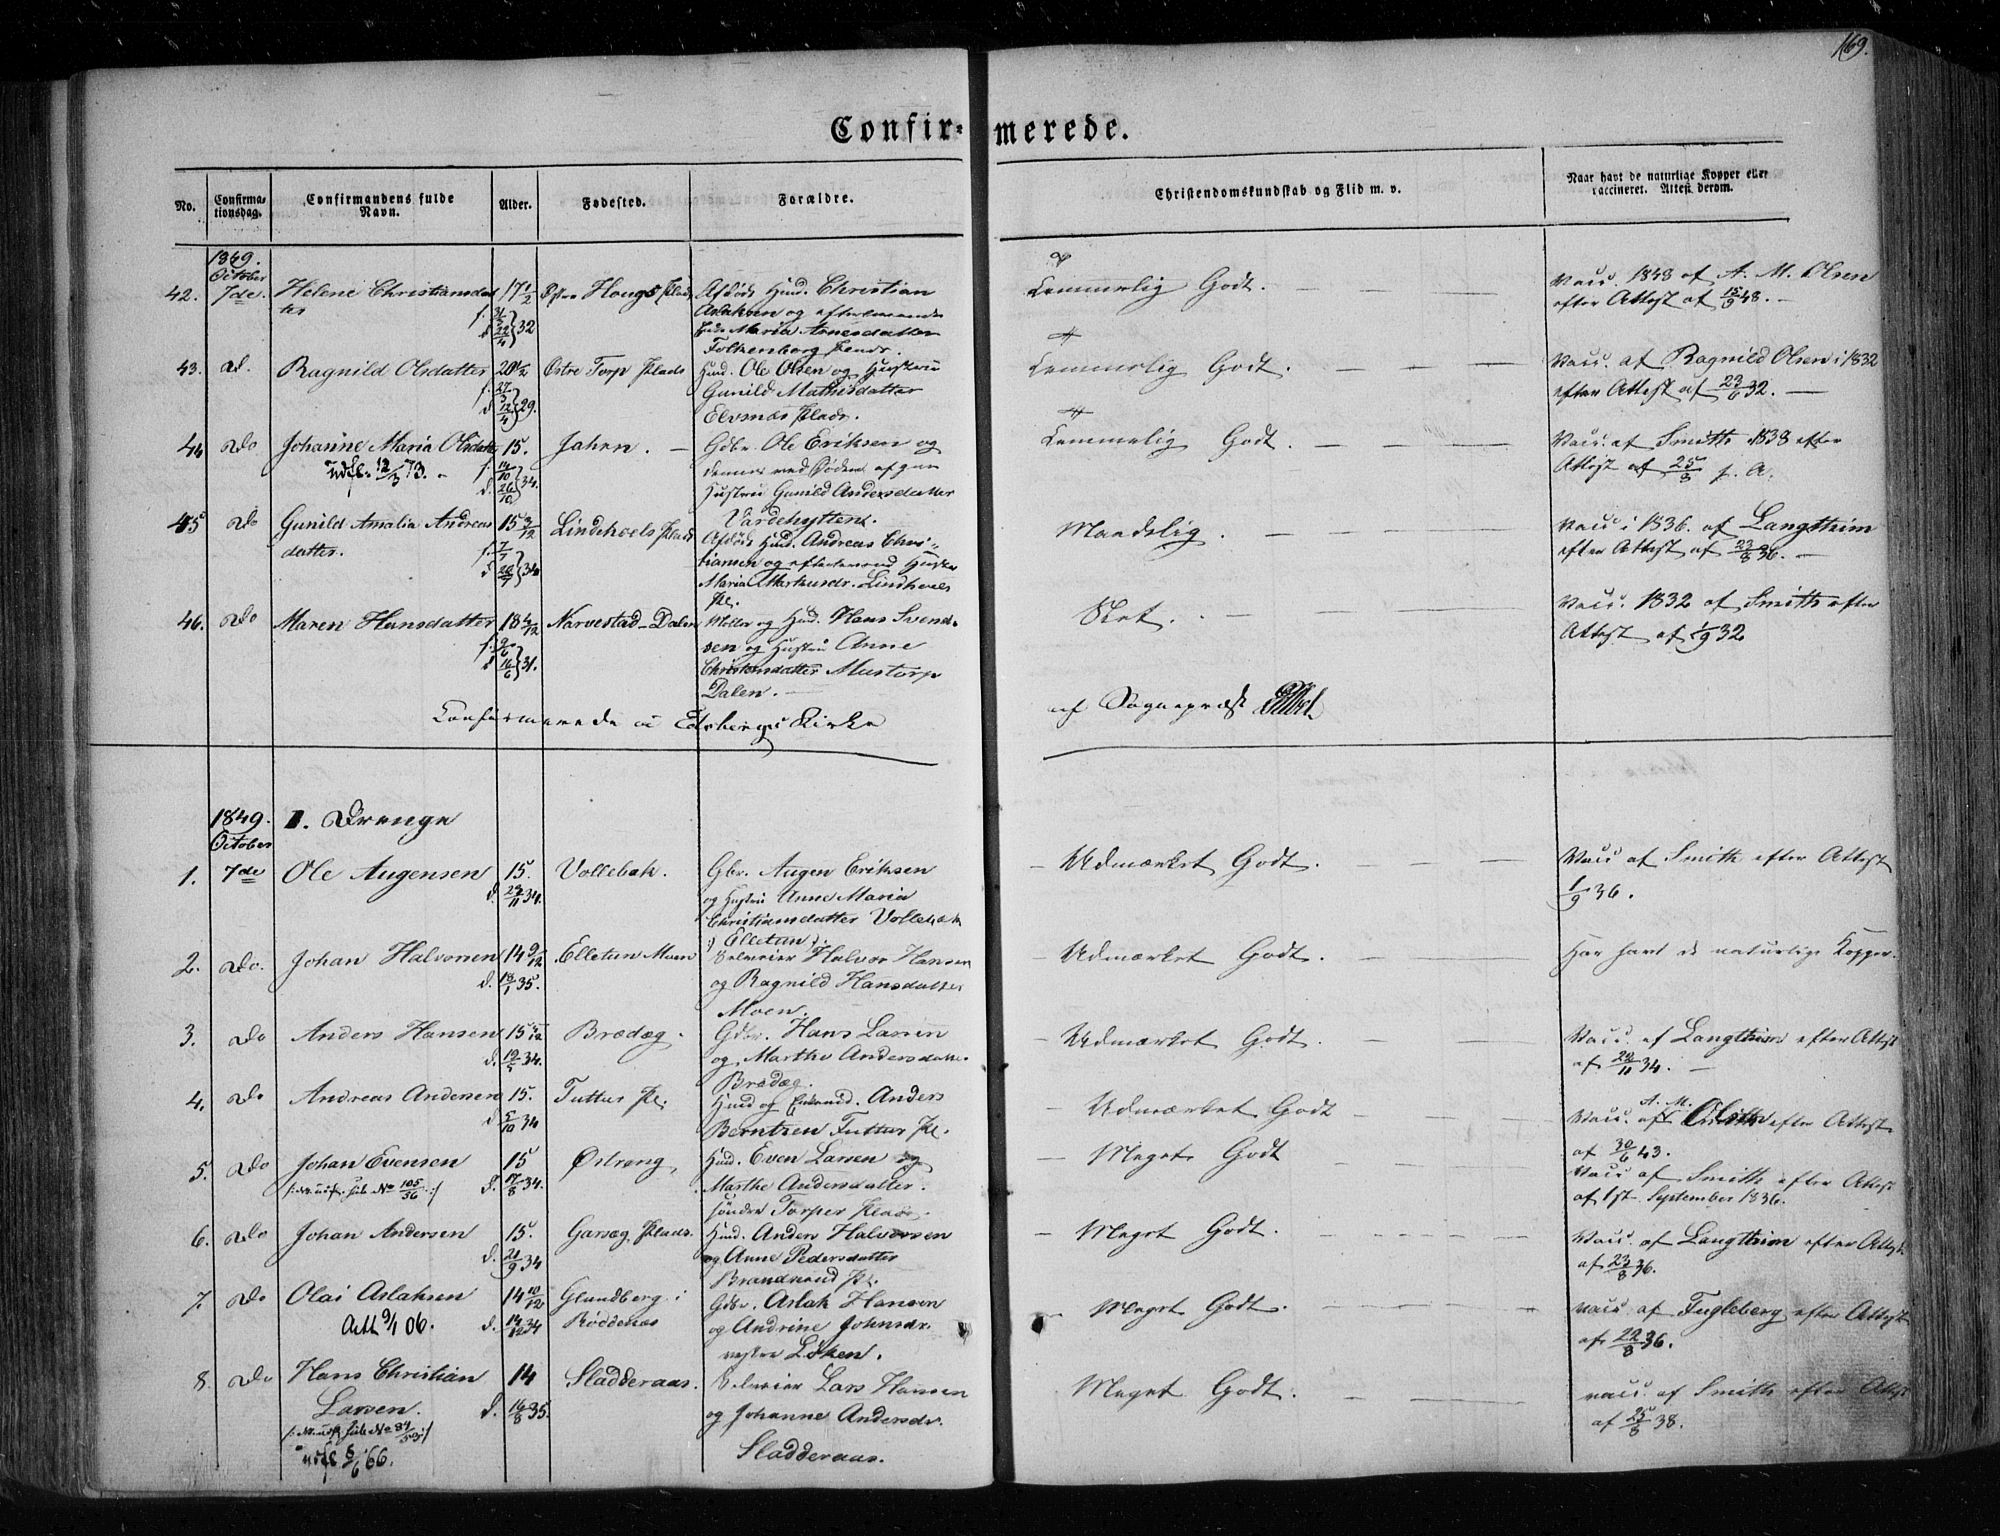 169.
Confirmerede.
No.
Confirmationsdag.
Confirmandens fulde Navn.
Alder.
Fødested.
Forældre.
Christendomskundskab og Flid m. v.
Naar havt de naturlige Kopper eller vaccineret. Attest derom.
1849.
October
42. 7de. Helene Christiansdatter 17 1/2 Østre Haugs Plads Afdøde Huusm. Christian
Aslaksen og efterlevende
Enke Maria Arnesdatter
Folkenborg Plads.
Temmelig Godt.
Vacc. 1848 af A. M. Olsen
efter Attest af 15/9 48.
43. Do. Ragnild Olsdatter 20 1/2 Østre Torp Plads Huusm. Ole Olsen og Hustru
f. 27/3
d. 12/4 } 29.
Gunild Mathisdatter
Elvenæs Plads.
Temmelig Godt.
Vacc. af Ragnild Olsen i 1832
efter Attest af 23/6 32.
44. Do Johanne Maria Olsdatter 15. Jahren. Gdbr. Ole Eriksen og
Udfl. 12/3 73.
f. 14/10
d. 26/10 } 34.
Hustru Gunild Andersdatter
Vardehytten.
Temmelig Godt.
Vacc. af Smith 1838 efter
Attest af 25/8 s. A.
45. Do Gunild Amalia Andreas 15 3/12 Lindehoels Plads
datter.
f. 7/7
d. 20/7 } 34
Afdøde Huusm. Andreas Chri-
stiansen og efterlevende Hustru
Maria Markusdr. Lindhoels
Pl.
Maadelig.
Vacc. i 1836 af Langtheim
efter Attest af 23/8 36.
46. Do Maren Hansdatter 18 4/12 Narvestad-Dalen Møller og Huusm. Hans Svend-
f. 9/6
d. 16/6 } 31.
sen og Hustru Anne
Christensdatter Mustorp
Dalen.
Slet.
Vacc. 1832 af Smith efter
Attest af 1/9 32
Confirmerede i Edsbergs Kirke
af Sognepræst
1849.
October
I. Drenge
1. 7de Ole Augensen 15. Vollebæk. Gbr. Augen Eriksen
d. 23/11 34.
og Hustru Anne Maria
Christiansdatter Vollebæk
/: Elletun :/.
Udmærket Godt.
Vacc af Smith efter Attest
1/9 36.
2. Do. Johan Halvorsen 14 9/12 Elletun Moen Selveier Halvor Hansen
d. 18/1 35.
og Ragnild Hansdatter
Moen.
Udmærket Godt.
Har havt de naturlige Kopper.
3. Do Anders Hansen 15 5/12 Brædæg. Gdbr. Hans Larsen
d. 19/5 34.
og Marthe Andersdatter
Brædæg.
Udmærket Godt.
Vacc. af Langtheim efter Attest
af 22/11 34.
4. Do Andreas Andersen 15. Tuttus Pl. Huusm og Enkemd. Anders
d. 5/10 34
Berntsen Tuttus Pl.
Udmærket Godt
A. M.
Vacc. af Olsen efter Attest
af 30/6 43.
5. Do Johan Evensen 15 Østreng, Huusm. Even Larsen og
No 105/56 :/
d. 17/8 34.
Marthe Andersdatter.
søndre Torper Plads.
Meget Godt
Vacc af Smith efter Attest
af 1st September 1836.
6. Do Johan Andersen 15. Garsæg Plads. Huusm. Anders Halvorsen
d. 21/9 34
og Anne Pedersdatter
Brandsrud Pl.
Meget Godt.
Vacc. af Langtheim efter Attest
af 23/8 36.
7. Do Olai Aslaksen 14 10/12 Glundberg i Gdbr. Aslak Hansen
Att 9/1 06.
d. 14/12 34
Røddenæs
og Andrine Johnsdr.
vestre Løken.
Meget Godt.
Vacc af Fugleberg efter Attest
af 22/8 36.
8. Do Hans Christian 14 Sladderaas. Selveier Lars Hansen
Larsen.
No 84/53 :/
udfl 5/6 66.
d. 16/8 35.
og Johanne Andersdr.
Sladderaas.
Meget Godt.
vacc. af Smith efter Attest
af 25/8 38.